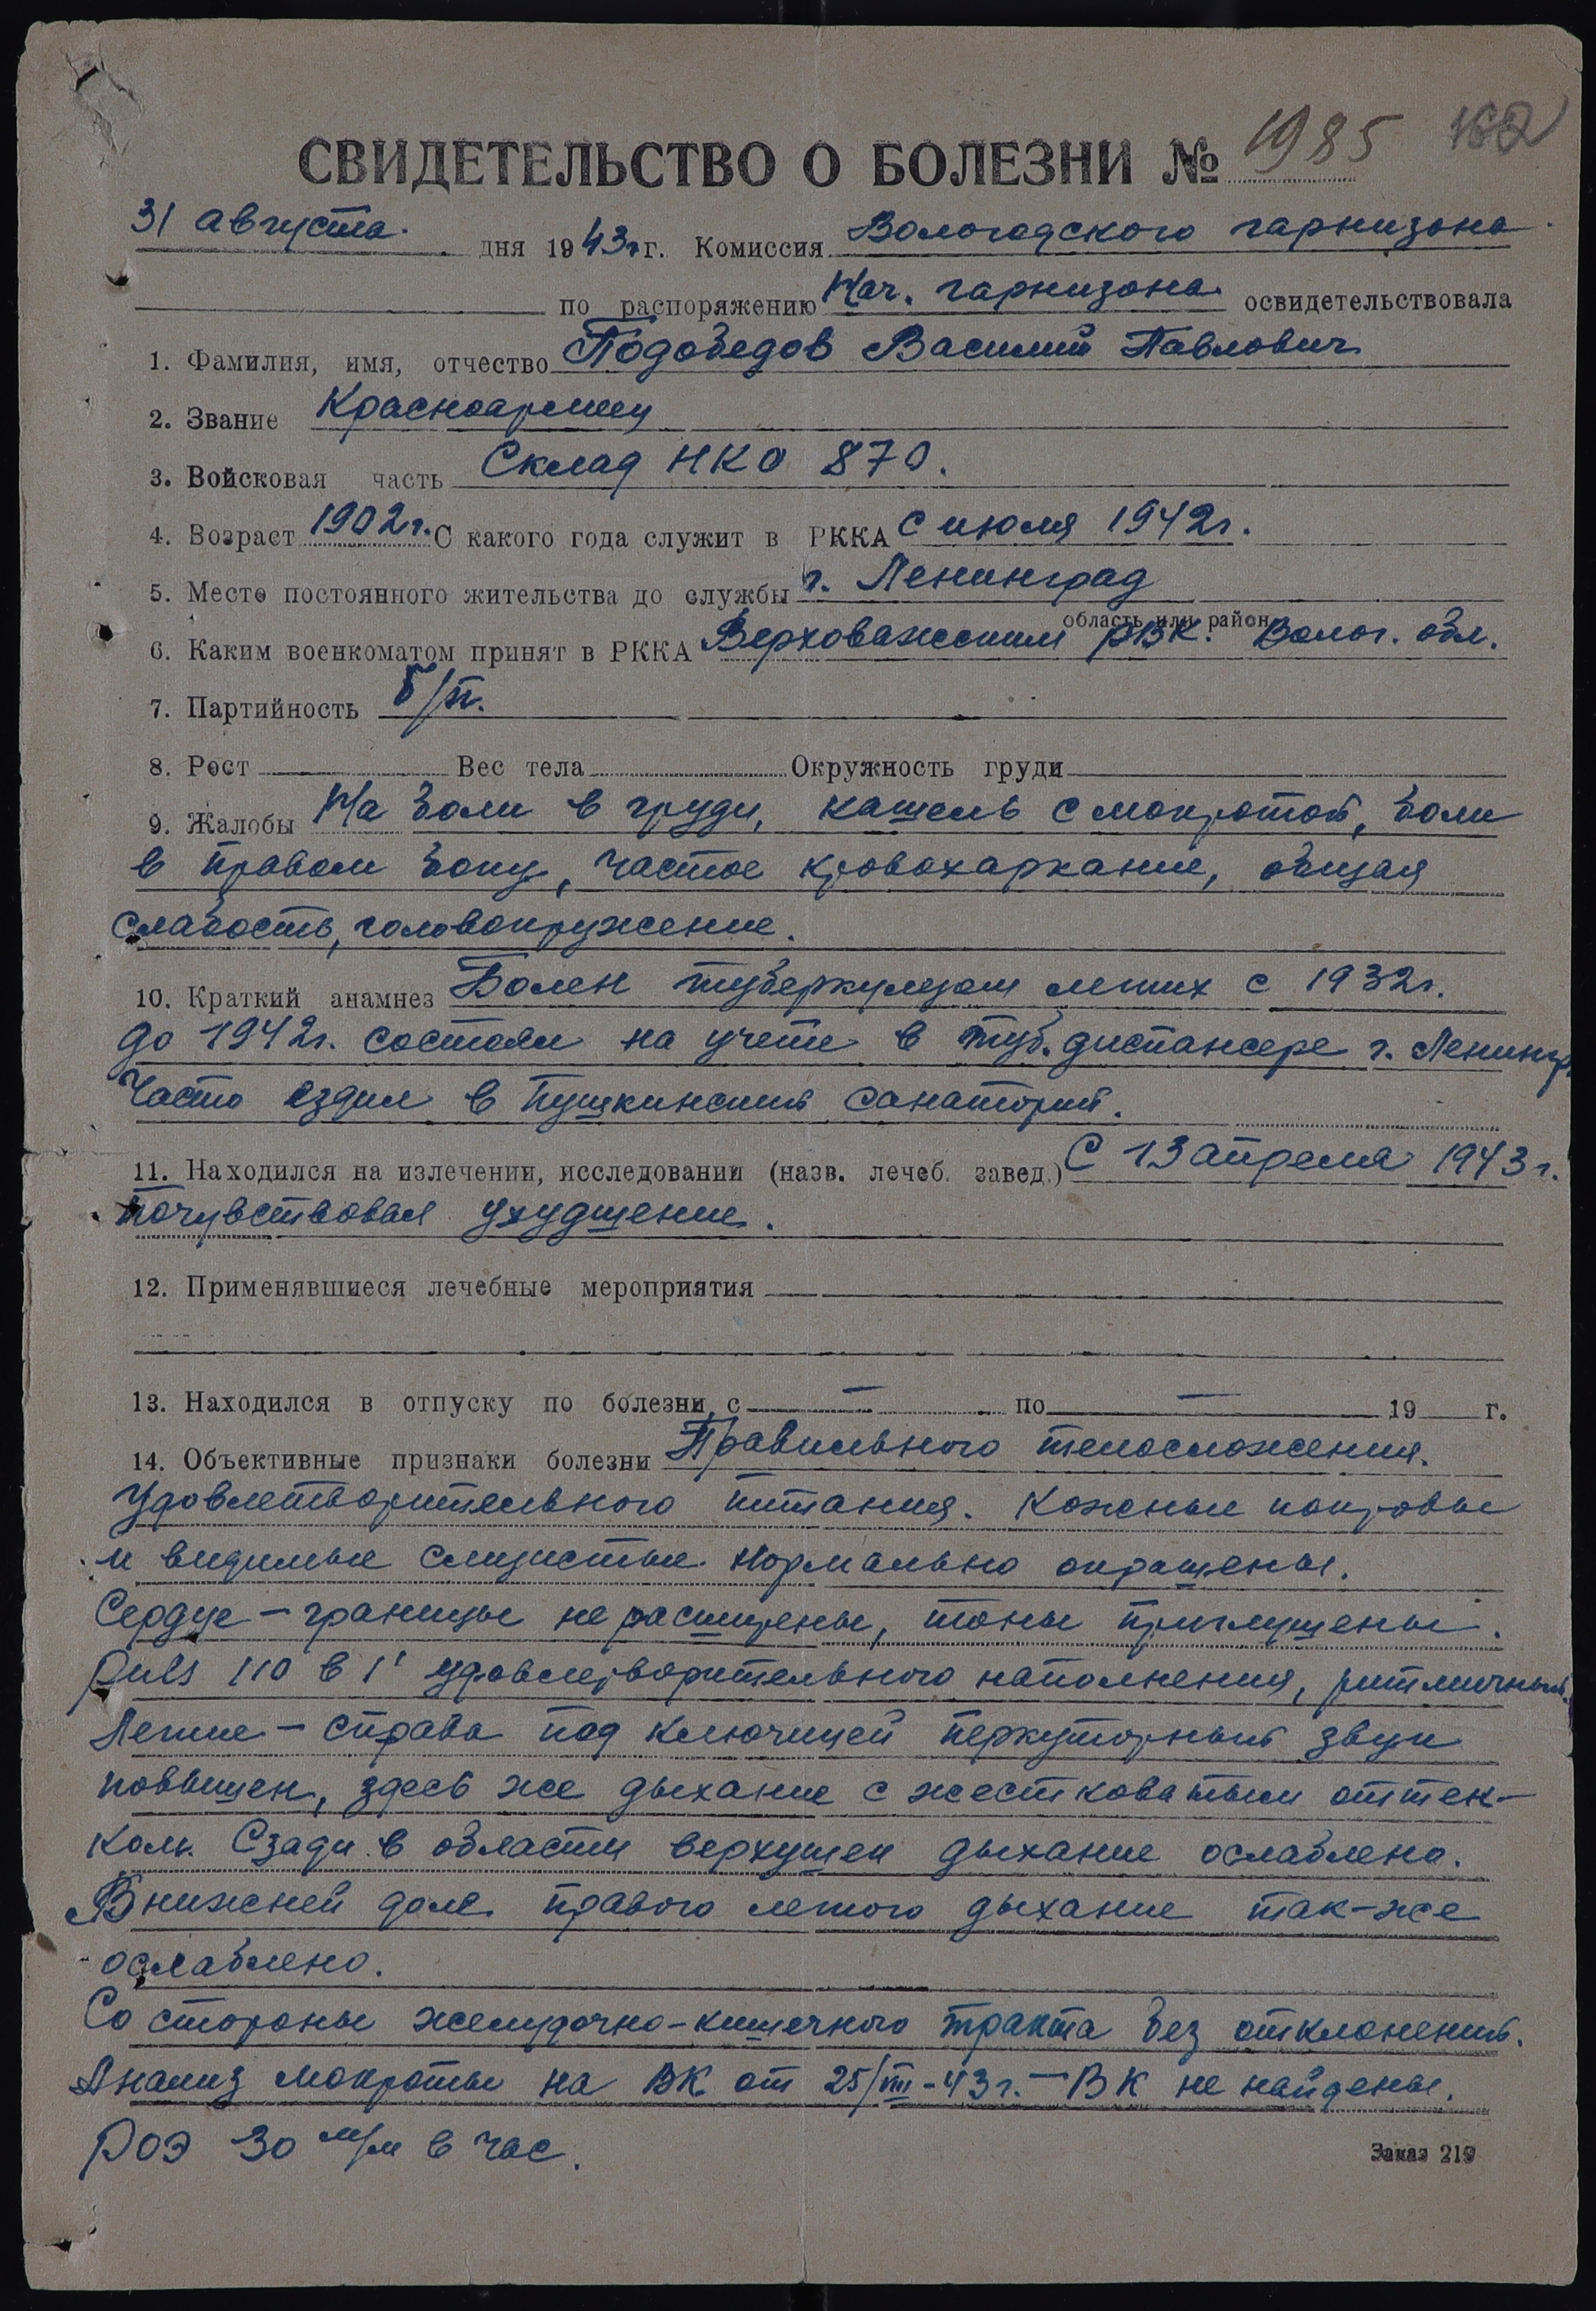 СВИДЕТЕЛЬСТВО О БОЛЕЗНИ № 1985 162
31 августа дня 1943 г. г. Комиссия Вологодского гарнизона
по распоряжению Нач. гарнизона освидетельствовала
1. Фамилия, имя, отчество Подобедов Василий Павлович
2. Звание Красноармеец
3. Войсковая часть Склад НКО 870.
4. Возраст 1902г. С какого года служит в РККА с июля 1942г.
5. Место постоянного жительства до службы г. Ленинград
область или район
6. Каким военкоматом принят в РККА Верховажским РВК. Волог. обл.
7. Партийность б/п.
8. Рост Вес тела Окружность груди
9. Жалобы На боли в груди, кашель с мокротой, боли
в правом боку, частое кровохаркание, общая
слабость, головокружение.
10. Краткий анамнез Болен туберкулезом легких с 1932г.
До 1942г. состоял на учете в туб. диспансере г. Ленингр.
Часто ездил в Пушкинский санаторий.
11. Находился на излечении, исследовании (назв. лечеб. завед.) С 13 апреля 1943 г.
почувствовал ухудшение.
12. Применявшиеся лечебные мероприятия
13. Находился в отпуску по болезни с — по — 19 г.
14. Объективные признаки болезни Правильного телосложения.
Удовлетворительного питания. Кожные покровы
и видимые слизистые нормально окрашены.
Сердце – границы не расширены, тоны приглушены.
Puls 110 в 1' удовлетворительного наполнения, ритмичный.
Легкие – справа под ключицей перкуторный звук
повышен, здесь же дыхание с жестковатым оттен-
ком. Сзади в области верхушек дыхание ослаблено.
В нижней доле правого легкого дыхание так-же
ослаблено.
Со стороны желудочно-кишечного тракта без отклонений.
Анализ мокроты на ВК от 25/VIII-43г. – ВК не найдены.
РОЭ 30 м/м в час.
Заказ 219